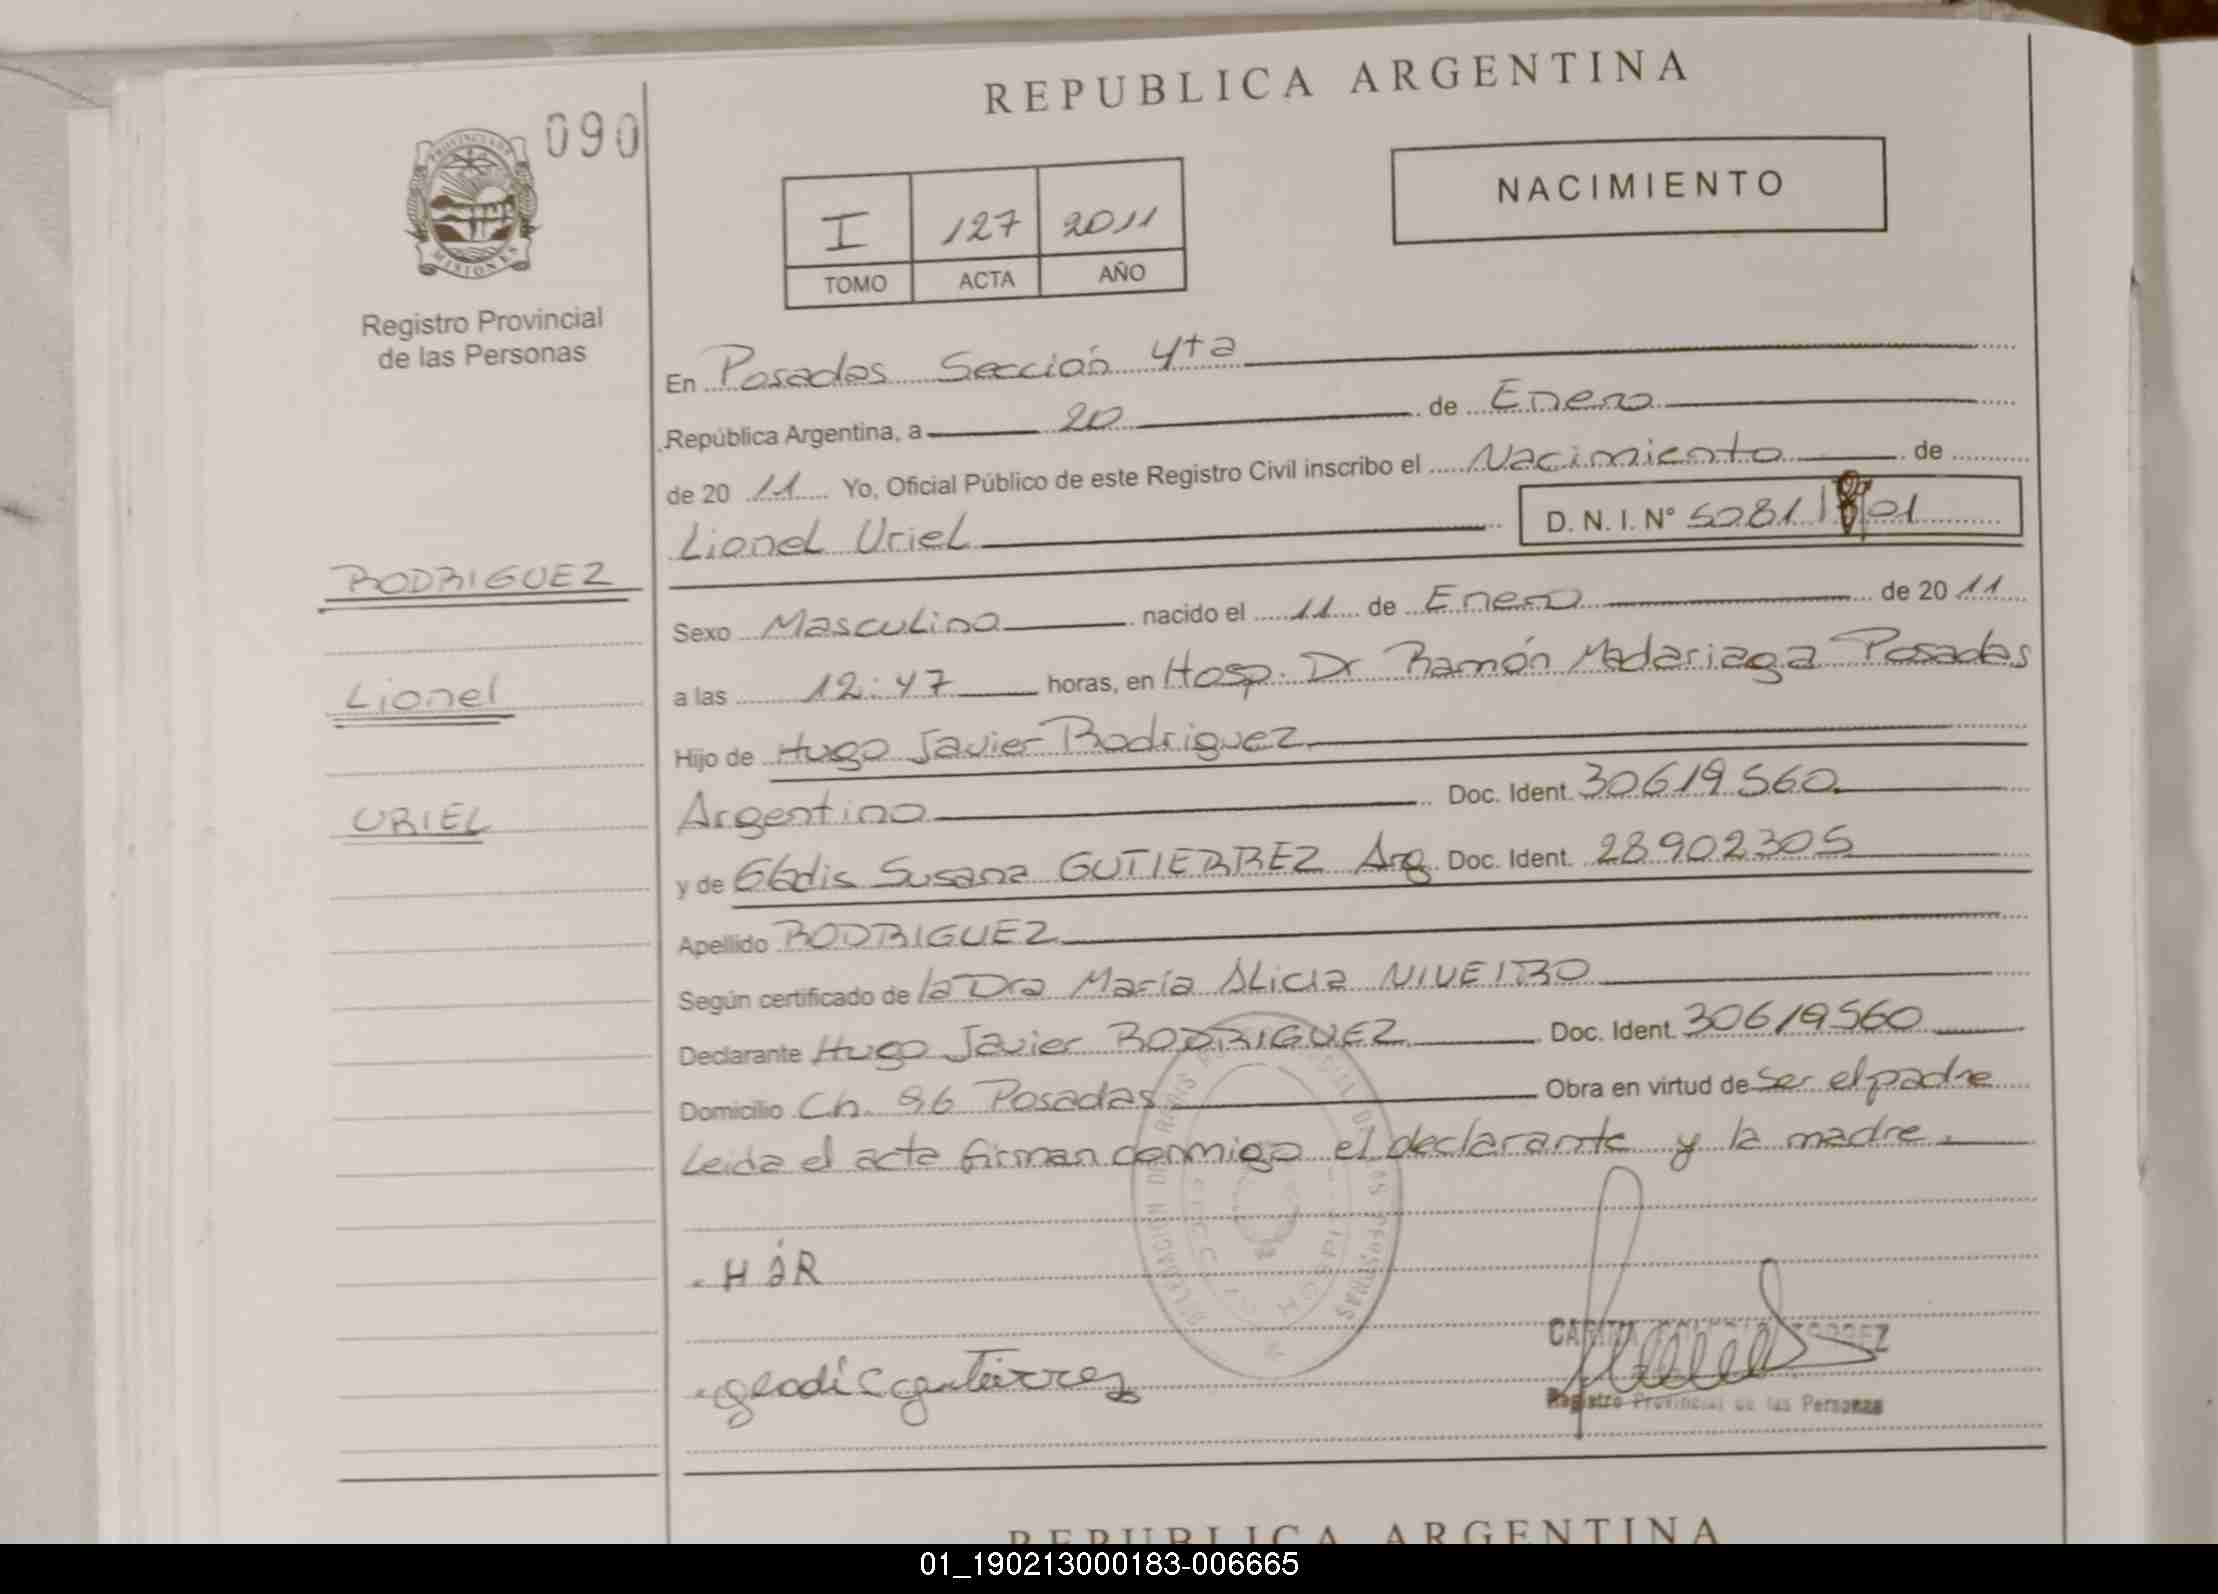 REPUBLICA ARGENTINA
090
PROVINCIA DE
MISIONES
Registro Provincial
de las Personas
I 127 2011
TOMO ACTA AÑO
NACIMIENTO
RODRIGUEZ
Lionel
URIEL
En Posadas Sección 4ta
República Argentina, a 20 de Enero
de 20 11 Yo, Oficial Público de este Registro Civil inscribo el Nacimiento de
Lionel Uriel D. N. I. Nº 50811 01
Sexo Masculino nacido el 11 de Enero de 20 11
a las 12:47 horas, en Hosp. Dr Ramón Madariaga Posadas
Hijo de Hugo Javier Rodriguez
Argentino Doc. Ident. 30619560
y de Gladis Susana GUTIERREZ Arg. Doc. Ident. 28902305
Apellido RODRIGUEZ
Según certificado de la Dra María Alicia NIVEIRO
Declarante Hugo Javier RODRIGUEZ Doc. Ident. 30619560
Domicilio Ch. 96 Posadas Obra en virtud de ser el padre
Leida el acta firman conmigo el declarante y la madre.
. H J R
Registro Provincial de las Personas
REPUBLICA ARGENTINA
01_190213000183-006665